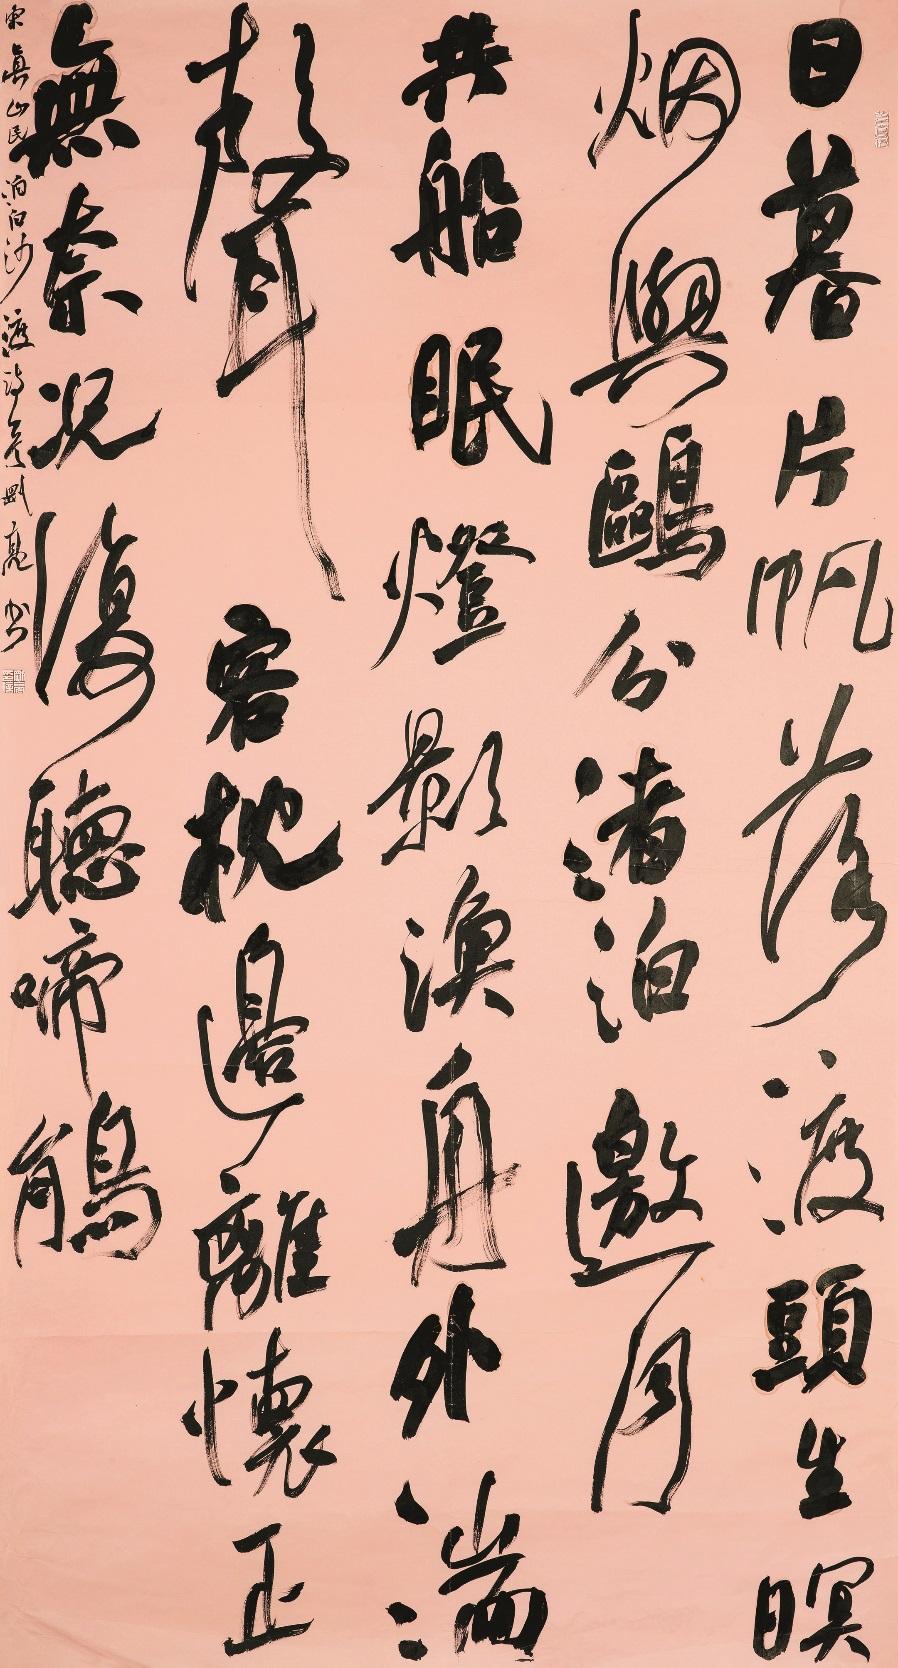 日暮片帆落渡頭生暝
烟與鷗分渚泊邀月
共船眠燈影漁舟外湍
聲客枕邊離懷正
無奈況復聽啼鵑
宋真山民泊白沙渡詩 亮書